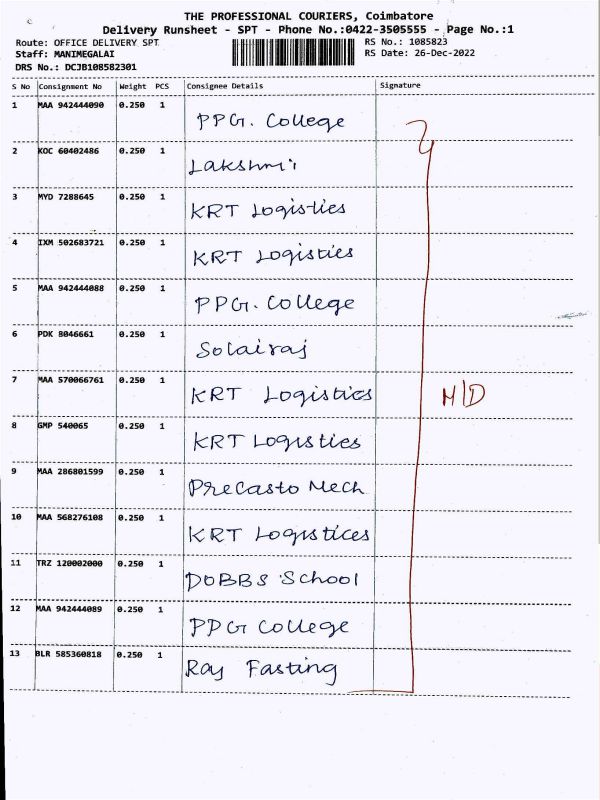 THE PROFESSIONAL COURIERS, Coimbatore
Delivery Runsheet - SPT - Phone No.:0422-3505555 - Page No.:1
Route: OFFICE DELIVERY SPT
Staff: MANIMEGALAI
DRS No.: DCJB108582301
RS No.: 1085823
RS Date: 26-Dec-2022
S No Consignment No Weight PCS Consignee Details Signature
1 MAA 942444090 0.250 1 PPG. College
2 KOC 60402486 0.250 1 Lakshmi
3 MYD 7288645 0.250 1 KRT Logistics
4 IXM 502683721 0.250 1 KRT Logistics
5 MAA 942444088 0.250 1 PPG. College
6 PDK 8046661 0.250 1 Solairaj
7 MAA 570066761 0.250 1 KRT Logistics M/D
8 GMP 540065 0.250 1 KRT Logistics
9 MAA 286801599 0.250 1 Precasto Mech
10 MAA 568276108 0.250 1 KRT Logistices
11 TRZ 120002000 0.250 1 DOBBS School
12 MAA 942444089 0.250 1 PPG College
13 BLR 585360818 0.250 1 Raj Fasting